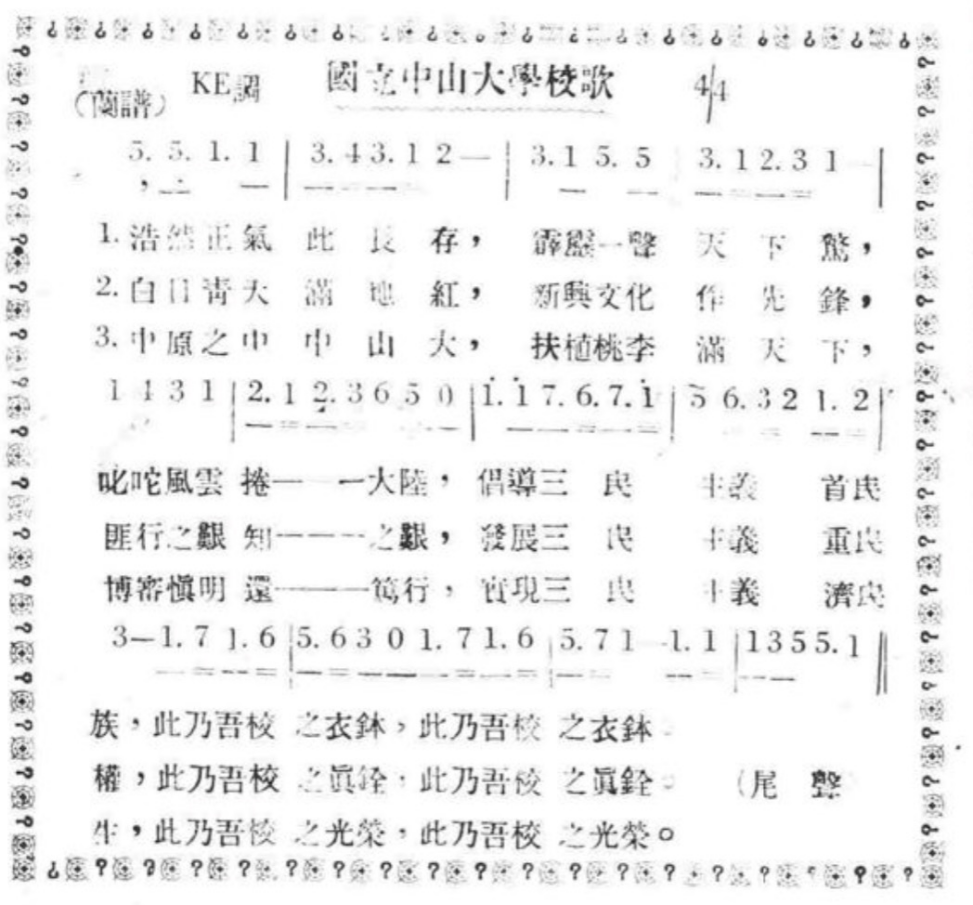 （簡譜） KE調 國立中山大學校歌 4/4
5. 5. 1. 1 | 3. 4 3. 1 2 — | 3. 1 5. 5 3. 1 2. 3 1 — |
1. 浩然正氣 此 長 存， 霹靂一聲 天 下 驚，
2. 白日青天 滿 地 紅， 新興文化 作 先 鋒，
3. 中原之中 中 山 大， 扶植桃李 滿 天 下，
1 4 3 1 | 2. 1 2. 3 6 5 0 | 1. 1 7. 6. 7. 1 | 5 6. 3 2 1. 2 |
叱咤風雲 捲——一大陸，倡導三 民 主義 首民
匪行之艱 知———之艱，發展三 民 主義 重民
博審慎明 還———篤行，實現三 民 主義 濟民
3—1. 7 1. 6 | 5. 6 3 0 1. 7 1. 6 | 5. 7 1 —1. 1 | 1 3 5 5. 1 ||
族，此乃吾校 之衣鉢，此乃吾校 之衣鉢。
權，此乃吾校 之眞銓，此乃吾校 之眞銓。 （尾 聲
生，此乃吾校 之光榮，此乃吾校 之光榮。